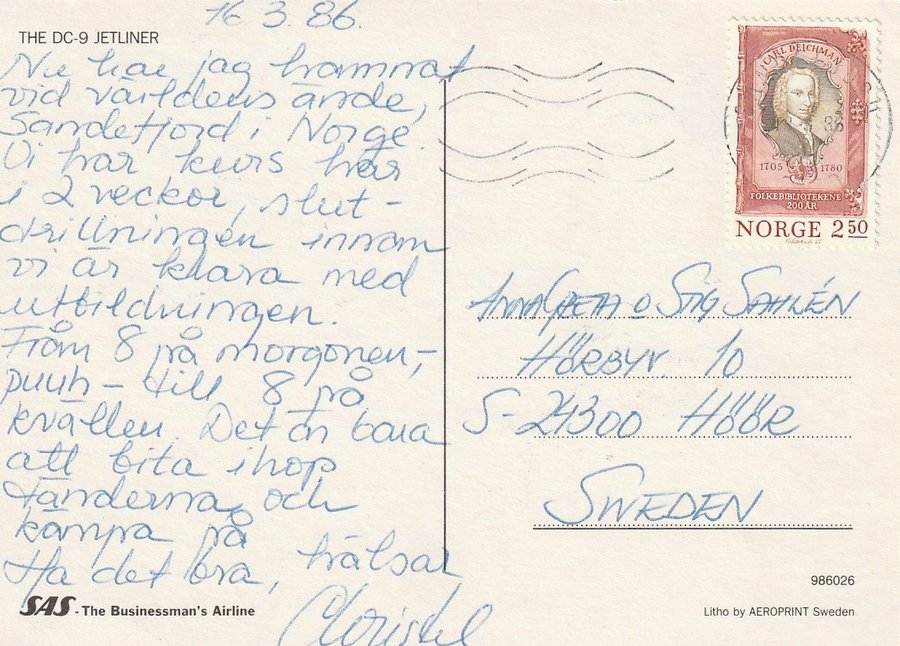 16 3. 86.
THE DC-9 JETLINER
Nu har jag hamnat
vid världens ände,
Sandefjord i Norge.
Vi har kurs här
i 2 veckor, slut-
drillningen innan
vi är klara med
utbildningen.
Från 8 på morgonen,-
puuh - till 8 på
kvällen. Det är bara
att bita ihop
tänderna och
kämpa på
Ha det bra, hälsar
Christel
SAS - The Businessman's Airline
CARL DEICHMAN
1705 1780
FOLKEBIBLIOTEKENE
200 ÅR
NORGE 2 50
ANNAGRETA o STIG SAHLÉN
HÖRBYV. 10
S-24300 HÖÖR
SWEDEN
986026
Litho by AEROPRINT Sweden